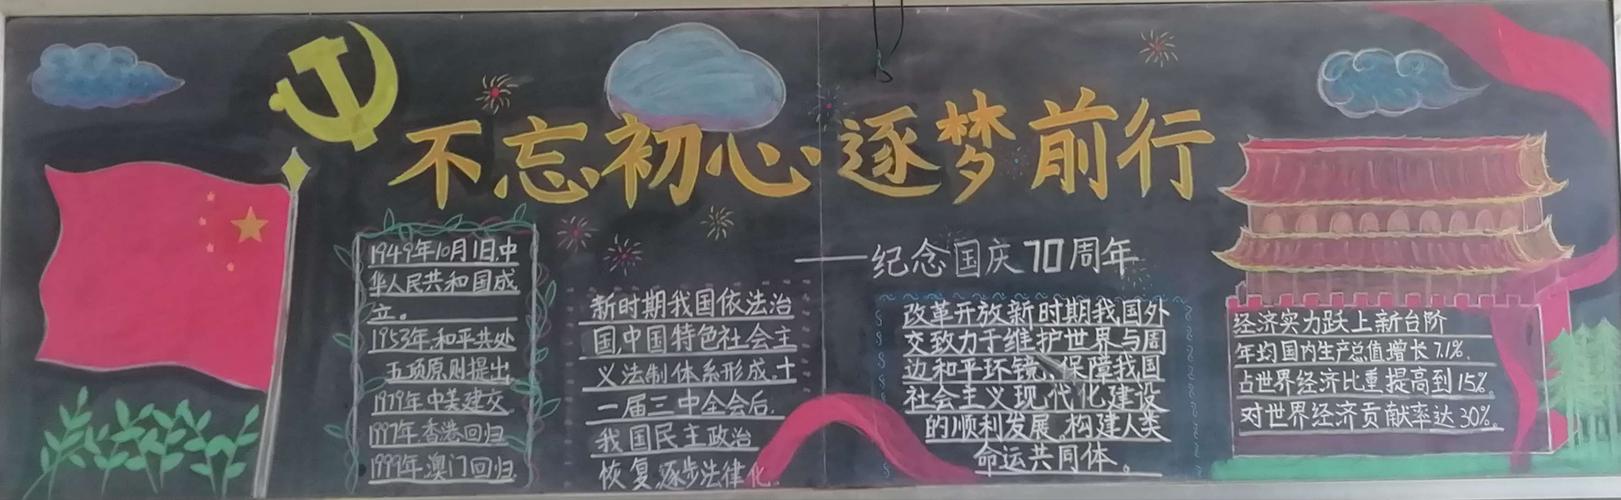 不忘初心·逐梦前行
——纪念国庆70周年
1949年10月1日,中
华人民共和国成
立。
1953年,和平共处
五项原则提出
1979年中美建交
1997年香港回归
1999年,澳门回归
新时期我国依法治
国,中国特色社会主
义法制体系形成,十
一届三中全会后,
我国民主政治
恢复,逐步法律化
改革开放新时期我国外
交致力于维护世界与周
边和平环镜,保障我国
社会主义现代化建设
的顺利发展,构建人类
命运共同体。
经济实力跃上新台阶
年均国内生产总值增长7.1%.
占世界经济比重提高到15%。
对世界经济贡献率达30%。